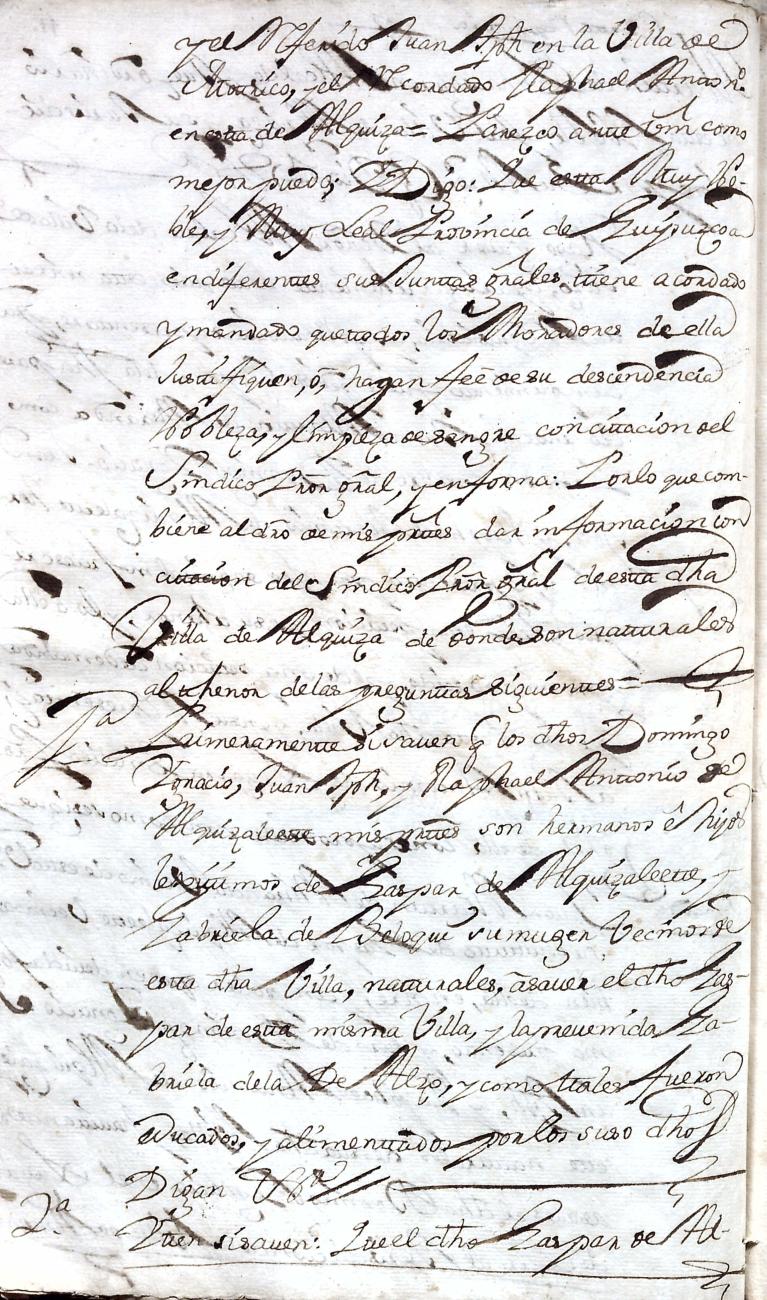 y el Referido Juan Jph en la Villa de
Motrico, y el Recordado Raphael Anton.º
en esta de Alquiza= Parezco ante Vm como
mejor puedo; Y Digo: Que esta Muy No-
ble, y Muy Leal Provincia de Guipuzcoa
en diferentes sus Juntas grâles, tiene acordado
y mandado que todos los Moradores de ella
Justifiquen, ô, hagan feê de su descendencia
Nobleza, y limpieza de sangre con cittacion del
Sindico Prôr grâl, y en forma: Por lo que com-
biene al dro de mis prtes dar informacion con
cittacion del Sindico Prôr grâl de esta dha
Villa de Alquiza de donde son naturales
al thenor de las preguntas siguientes=
1ª Primeramente si saven q̃ los dhos Domingo
Ignacio, Juan Jph, y Raphael Antonio de
Alquizaleette mis prtes son hermanos ê hijos
lexitimos de Gaspar de Alquizaleette, y
Gabriela de Beloqui su muger Vecinos de
esta dha Villa, naturales, â saver el dho Gas-
par de esta misma Villa, y la prevenida Ga-
briela de la De Alzo, y como tales fueron
educados, y alimentados por los suso dhos
Digan &ª
2ª Yten si saven: Que el dho Gaspar de Al-